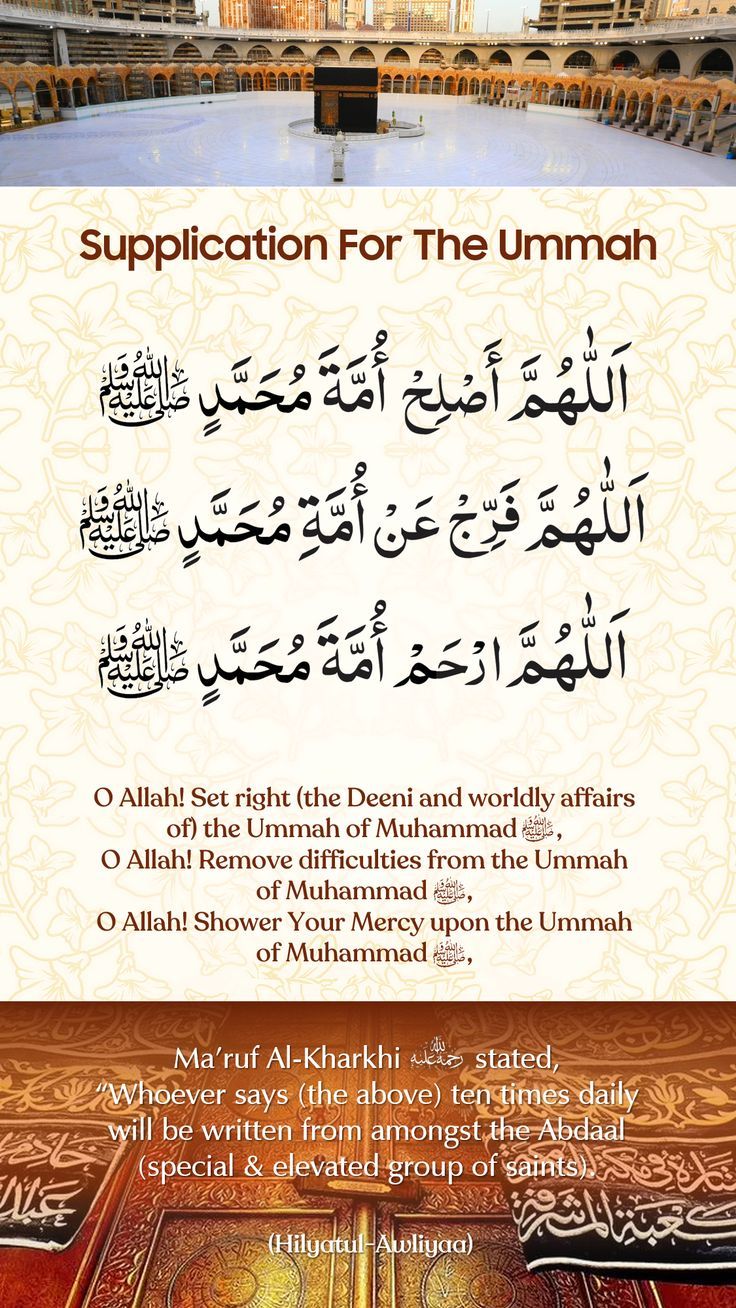 Supplication For The Ummah
اَللّٰهُمَّ أَصْلِحْ أُمَّةَ مُحَمَّدٍ ﷺ
اَللّٰهُمَّ فَرِّجْ عَنْ أُمَّةِ مُحَمَّدٍ ﷺ
اَللّٰهُمَّ ارْحَمْ أُمَّةَ مُحَمَّدٍ ﷺ
O Allah! Set right (the Deeni and worldly affairs
of) the Ummah of Muhammad ﷺ,
O Allah! Remove difficulties from the Ummah
of Muhammad ﷺ,
O Allah! Shower Your Mercy upon the Ummah
of Muhammad ﷺ,
Ma’ruf Al-Kharkhi رحمة الله عليه stated,
“Whoever says (the above) ten times daily
will be written from amongst the Abdaal
(special & elevated group of saints).
(Hilyatul-Awliyaa)